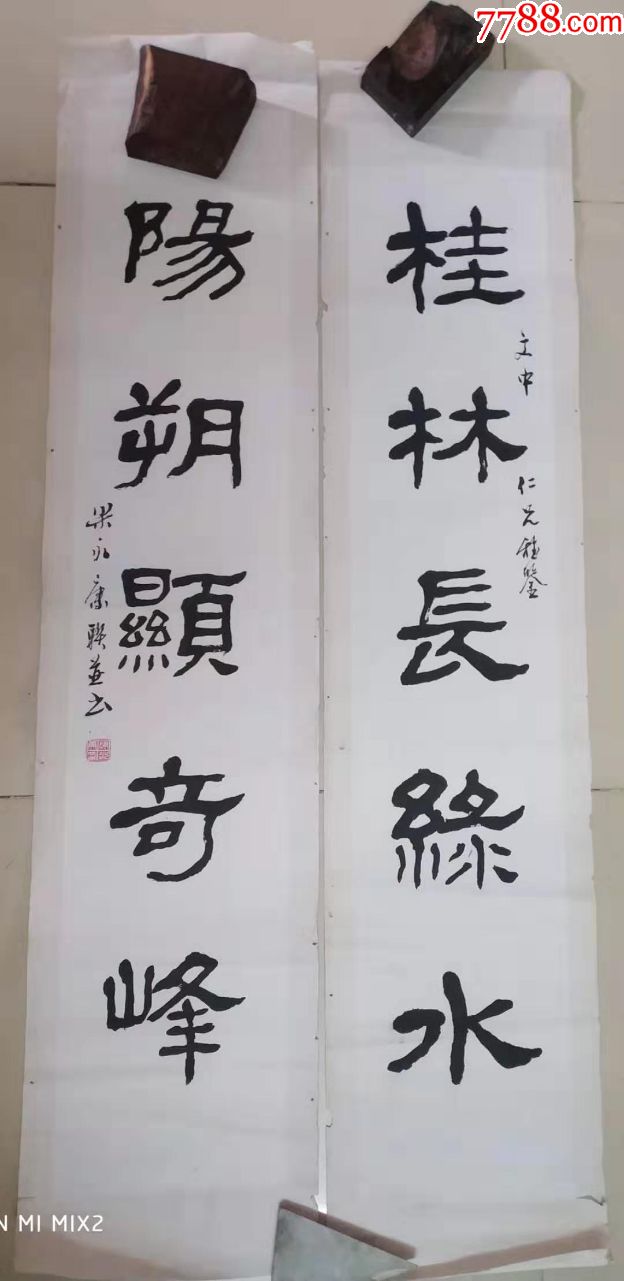 7788.com
桂林長綠水
文中 仁兄雅鑒
陽朔顯奇峰
梁永康聯並书
N MI MIX2